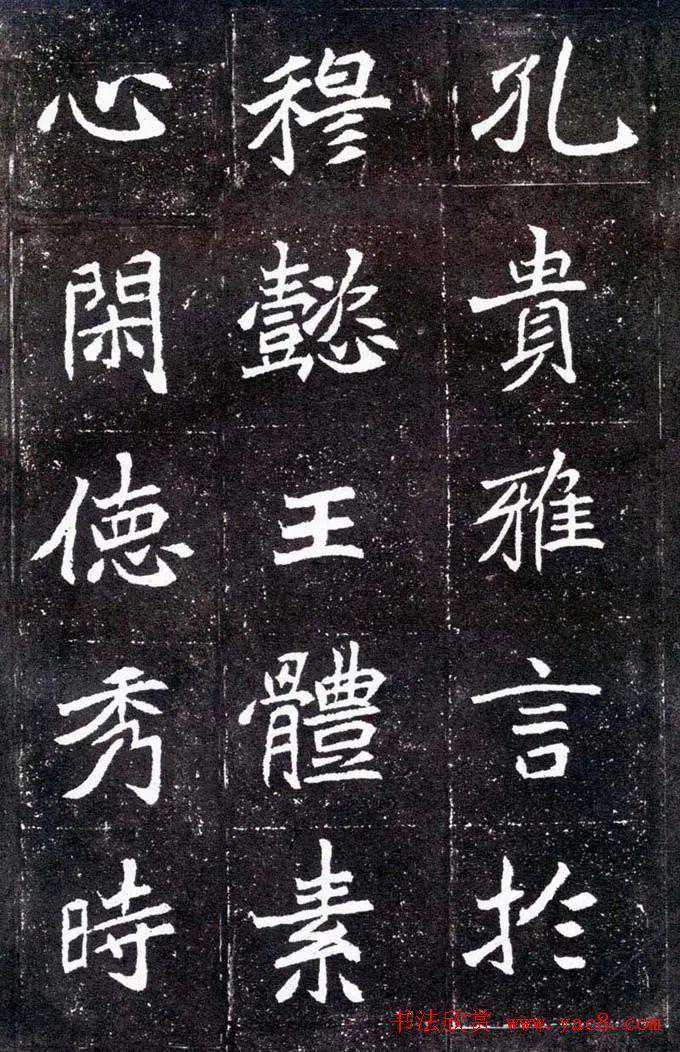 孔貴雅言於
穆懿王體素
心閑德秀時
书法欣赏 www.yac8.com